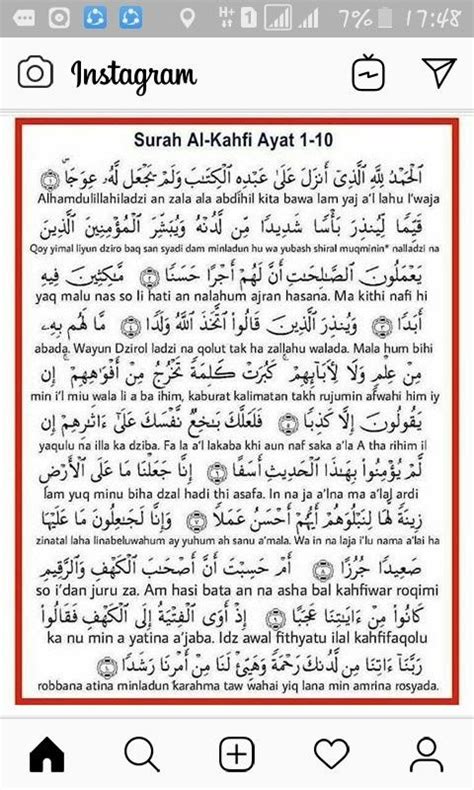 H+ 1 7% 17:48
Instagram
Surah Al-Kahfi Ayat 1-10
الْحَمْدُ لِلَّهِ الَّذِىٓ أَنزَلَ عَلَىٰ عَبْدِهِ الْكِتَٰبَ وَلَمْ يَجْعَل لَّهُۥ عِوَجَاۜ ١
Alhamdulillahiladzi an zala ala abdihil kita bawa lam yaj a'l lahu I'waja
قَيِّمًا لِّيُنذِرَ بَأْسًا شَدِيدًا مِّن لَّدُنْهُ وَيُبَشِّرَ الْمُؤْمِنِينَ الَّذِينَ
Qoy yimal liyun dziro baq san syadi dam minladun hu wa yubash shiral muqminin* nalladzi na
يَعْمَلُونَ الصَّٰلِحَٰتِ أَنَّ لَهُمْ أَجْرًا حَسَنًا ٢ مَّٰكِثِينَ فِيهِ
yaq malu nas so li hati an nalahum ajran hasana. Ma kithi nafi hi
أَبَدًا ٣ وَيُنذِرَ الَّذِينَ قَالُوا۟ اتَّخَذَ اللَّهُ وَلَدًا ٤ مَّا لَهُم بِهِۦ
abada. Wayun Dzirol ladzi na qolut tak ha zallahu walada. Mala hum bihi
مِنْ عِلْمٍ وَلَا لِءَابَآئِهِمْ كَبُرَتْ كَلِمَةً تَخْرُجُ مِنْ أَفْوَٰهِهِمْ إِن
min i'l miu wala li a ba ihim, kaburat kalimatan takh rujumin afwahi him iy
يَقُولُونَ إِلَّا كَذِبًا ٥ فَلَعَلَّكَ بَٰخِعٌ نَّفْسَكَ عَلَىٰٓ ءَاثَٰرِهِمْ إِن
yaqulu na illa ka dziba. Fa la a'l lakaba khi aun naf saka a'la A tha rihim il
لَّمْ يُؤْمِنُوا۟ بِهَٰذَا الْحَدِيثِ أَسَفًا ٦ إِنَّا جَعَلْنَا مَا عَلَى الْأَرْضِ
lam yuq minu biha dzal hadi thi asafa. In na ja a'lna ma a'lal ardi
زِينَةً لَّهَا لِنَبْلُوَهُمْ أَيُّهُمْ أَحْسَنُ عَمَلًا ٧ وَإِنَّا لَجَٰعِلُونَ مَا عَلَيْهَا
zinatal laha linabeluwahum ay yuhum ah sanu a'mala. Wa in na laja i'lu nama a'lai ha
صَعِيدًا جُرُزًا ٨ أَمْ حَسِبْتَ أَنَّ أَصْحَٰبَ الْكَهْفِ وَالرَّقِيمِ
so i'dan juru za. Am hasi bata an na asha bal kahfiwar roqimi
كَانُوا۟ مِنْ ءَايَٰتِنَا عَجَبًا ٩ إِذْ أَوَى الْفِتْيَةُ إِلَى الْكَهْفِ فَقَالُوا۟
ka nu min a yatina a'jaba. Idz awal fithyatu ilal kahfifaqolu
رَبَّنَآ ءَاتِنَا مِن لَّدُنكَ رَحْمَةً وَهَيِّئْ لَنَا مِنْ أَمْرِنَا رَشَدًا ١٠
robbana atina minladun karahma taw wahai yiq lana min amrina rosyada.